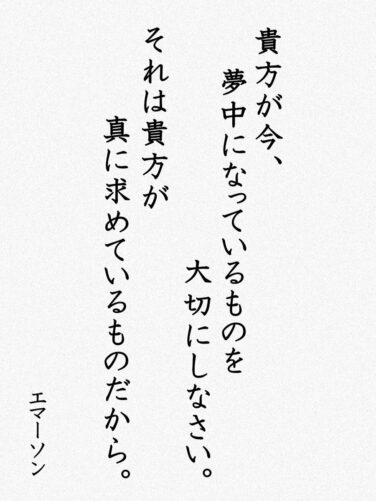 貴方が今、
夢中になっているものを
大切にしなさい。
それは貴方が
真に求めているものだから。
エマーソン